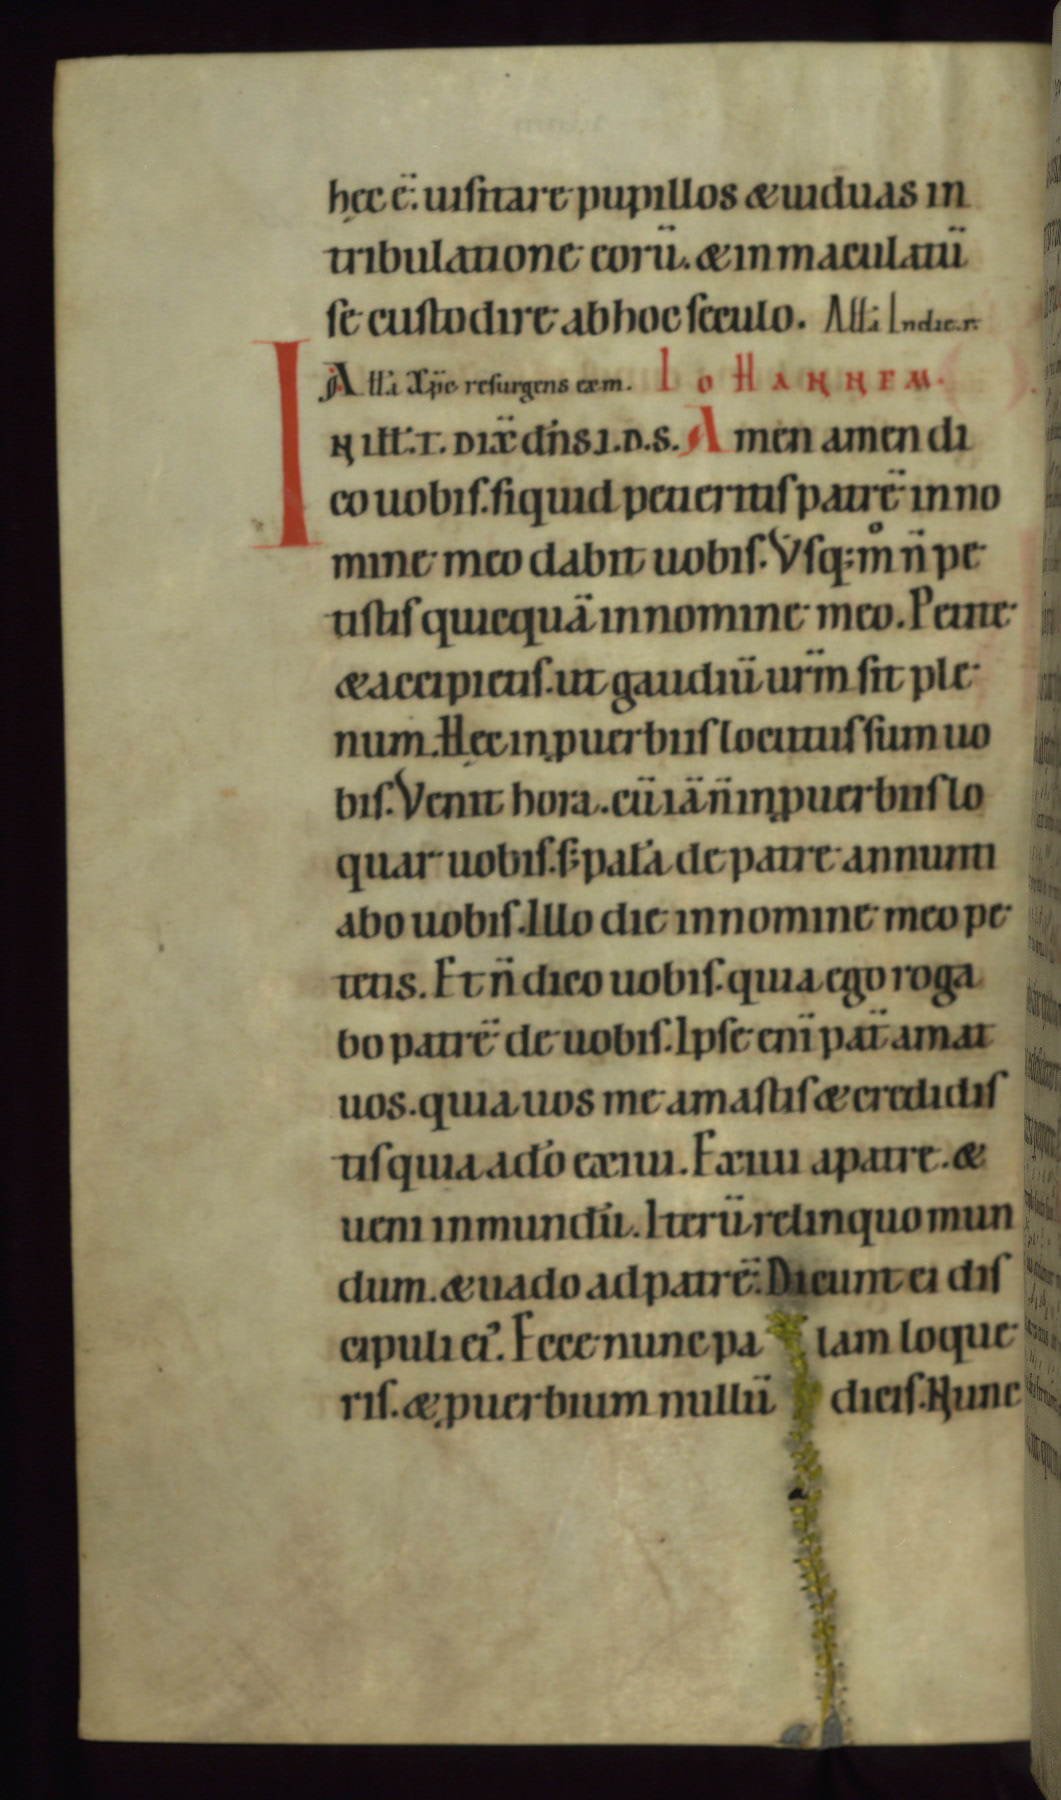 hęc ē. uisitare pupillos & uiduas in
tribulatione eorū. & inmaculatū
se custodire ab hoc seculo. Atta In die. r.
Atta Xp̄c resurgens ex m. IOHANNEM.
IN ILL'. T. DIX̄ dn̄s I. D. S. Amen amen di
co uobis. si quid petieritis patrē in no
mine meo dabit uobis. Vsq; m̊ n̄ pe
tistis quicquā in nomine meo. Petite
& accipietis. ut gaudiū ur̄m sit ple
num. Hęc in ꝓuerbiis locutus sum uo
bis. Venit hora. cū iā n̄ in ꝓuerbiis lo
quar uobis. s; palā de patre annunti
abo uobis. Illo die in nomine meo pe
tetis. Et n̄ dico uobis. quia ego roga
bo patrē de uobis. Ipse eni̅ pat̄ amat
uos. quia uos me amastis & credidis
tis quia a do̅ exiui. Exiui a patre. &
ueni in mundū. Iterū relinquo mun
dum. & uado ad patrē. Dicunt ei dis
cipuli ei'. Ecce nunc pa lam loque
ris. & ꝓuerbium nullū dicis. Nunc